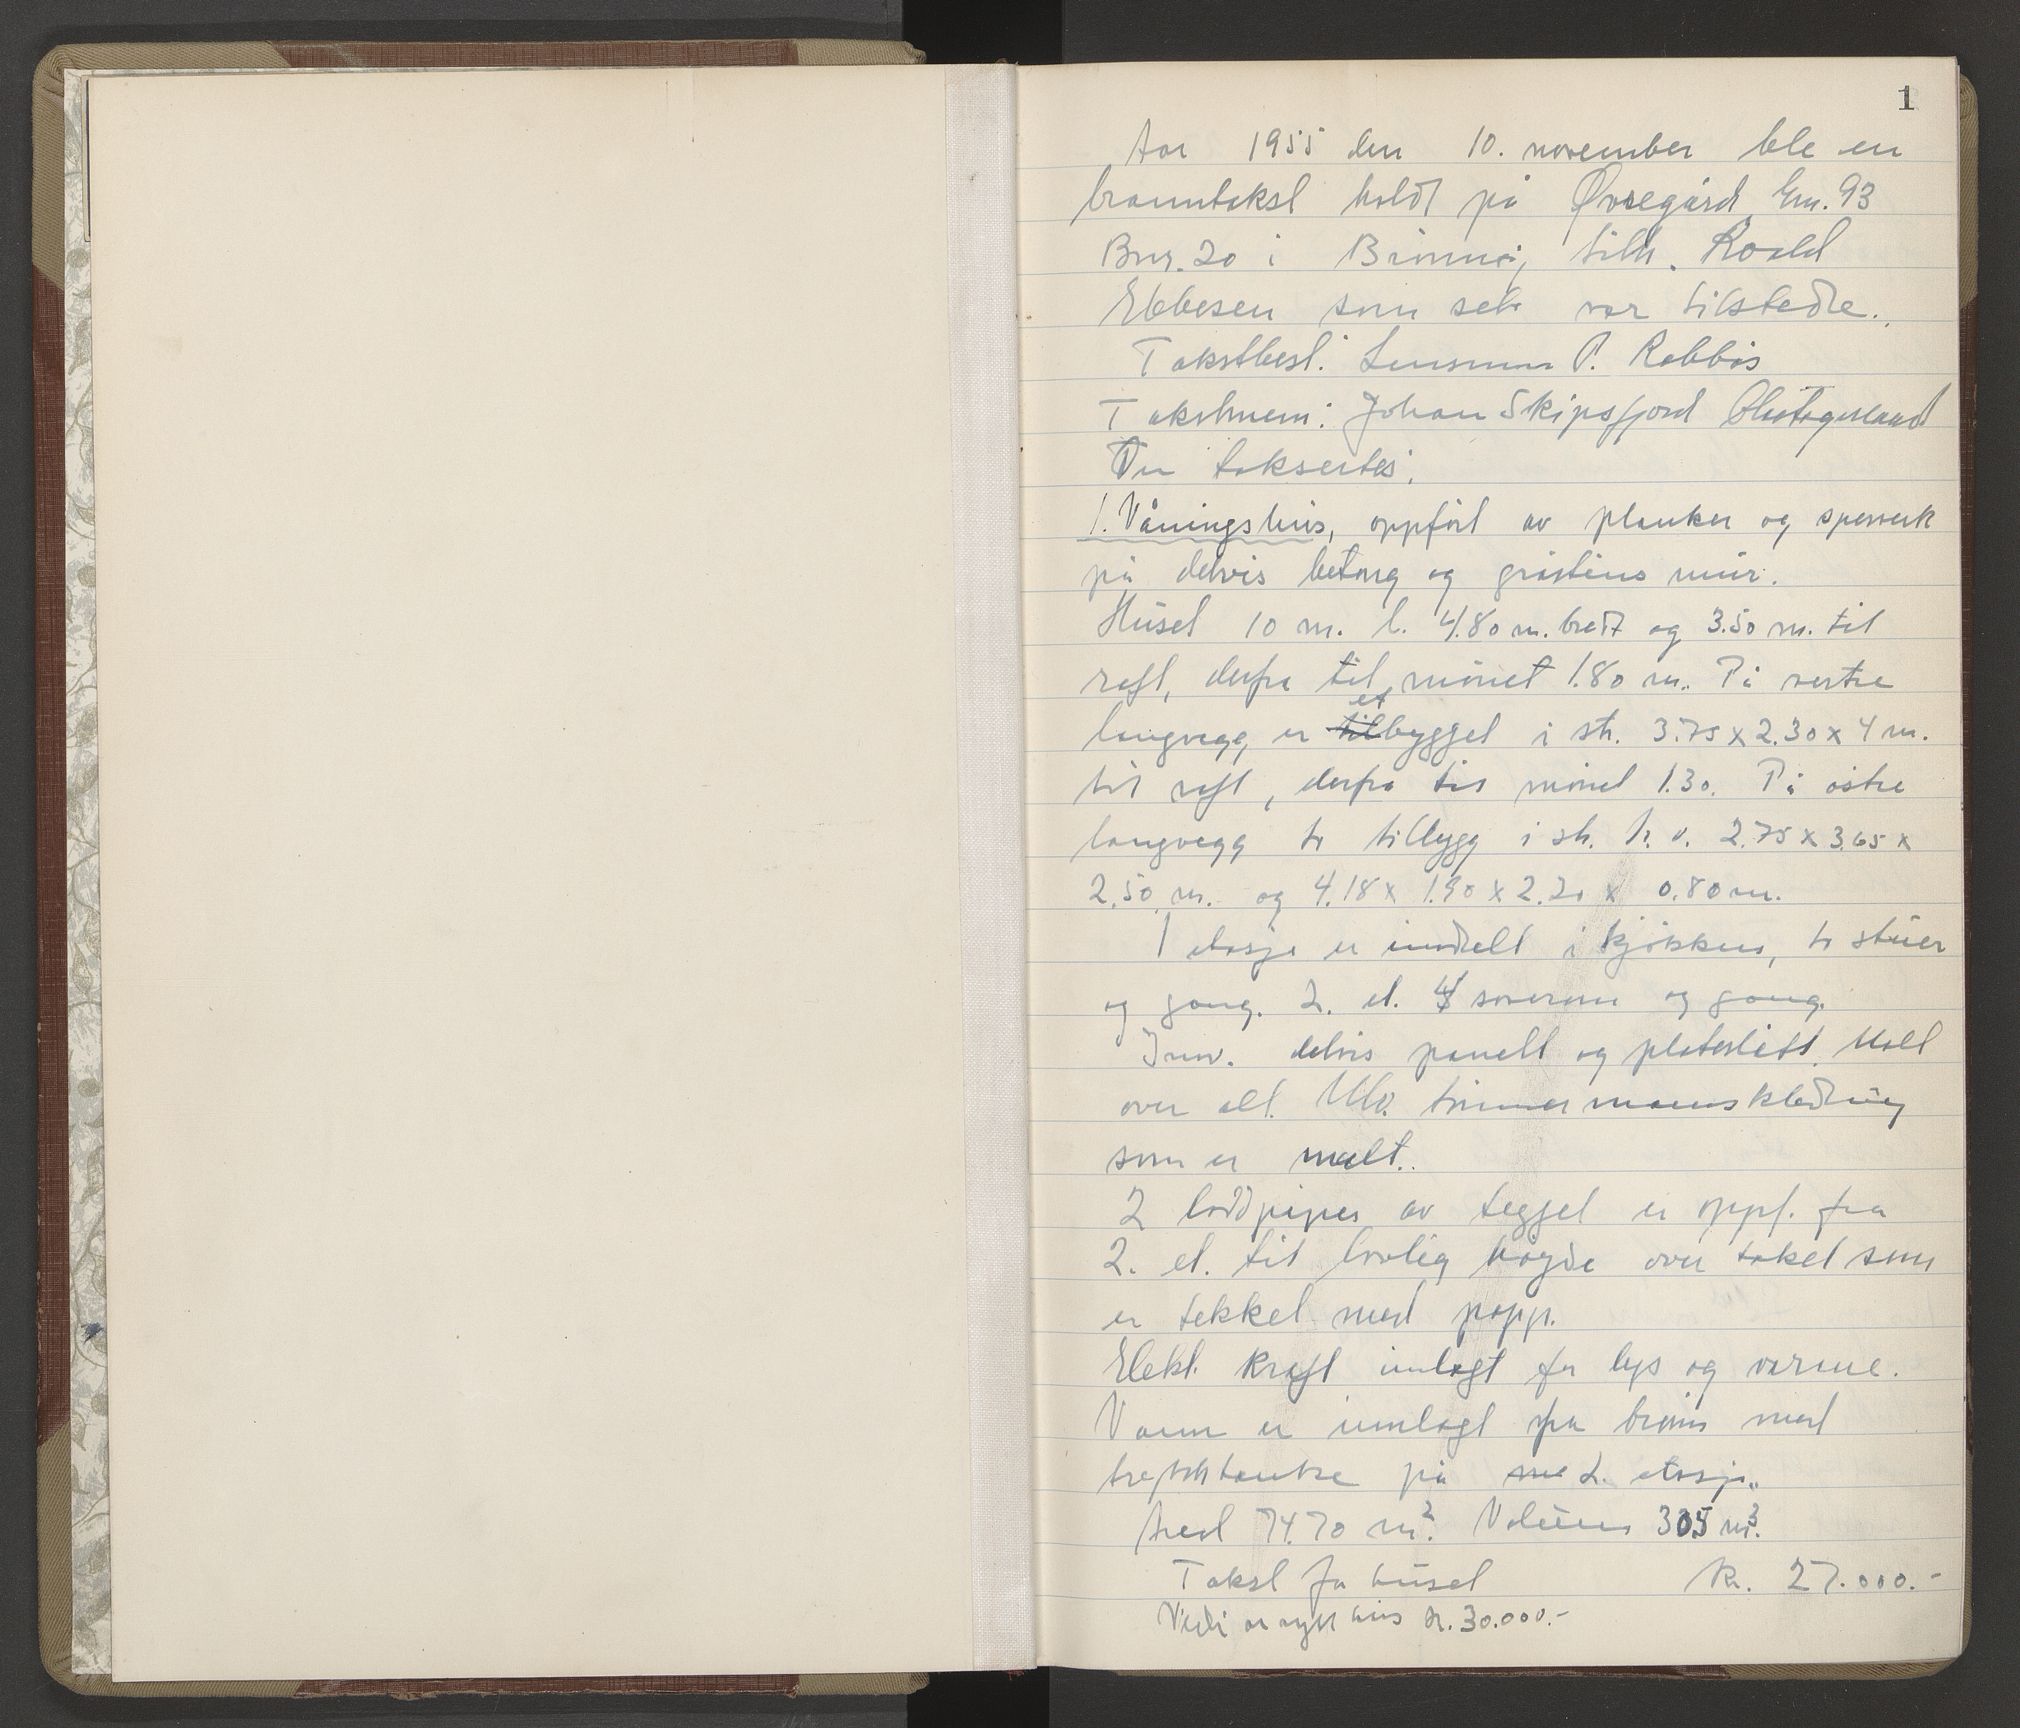 1
Aar 1955 den 10. november ble en
branntakst holdt på Øvregård Gnr. 93
Bnr. 20 i Brønnøy, tilh. Roald
Ebbesen som selv var tilstede.
Takstbest. Lensmann P. Rabbås
Takstmenn: Johan Skipsfjord
Der taksertes:
1. Våningshus, oppført av planker og sperverk
på delvis betong og gråsteins mur.
Huset 10 m. l. 4.80 m. bredt og 3.50 m. til
raft, derfra til mønet 1.80 m. På vestre
langvegg er et tilbygget i str. 3.75 x 2.30 x 4 m.
til raft, derfra til mønet 1.30. På østre
langvegg to tilbygg i str. h. v. 2.75 x 3.65 x
2.50 m. og 4.18 x 1.90 x 2.20 x 0.80 m.
1 etasje er inndelt i kjøkken, to stuer
og gang. 2. et. 4 soverom og gang.
Innv. delvis panelt og plateslått. Malt
over alt. Utv. tømmermannskledning
som er malt.
2 loddpiper av teggel er oppf. fra
2. et. til lovlig høgde over taket som
er tekket med papp.
Elekt. kraft innlagt for lys og varme.
Vann er innlagt fra brønn med
på 2. etasje.
Areal 74.70 m². Volum 305 m³.
Takst for huset Kr. 27.000.-
Verdi av nytt hus kr. 30.000.-